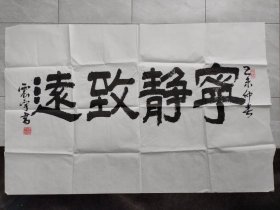 乙未仲春
寧靜致遠
書